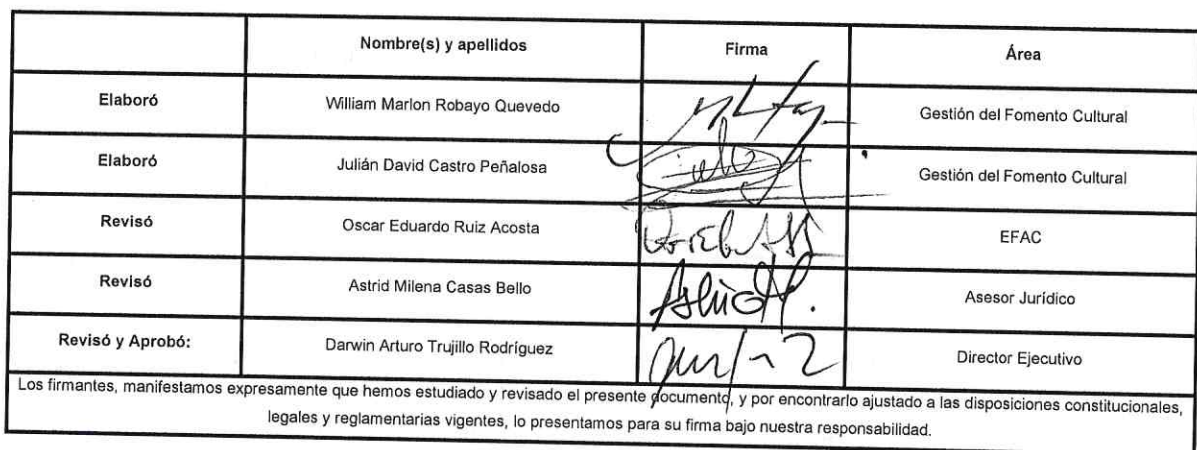 Nombre(s) y apellidos Firma Área
Elaboró William Marlon Robayo Quevedo Gestión del Fomento Cultural
Elaboró Julián David Castro Peñalosa Gestión del Fomento Cultural
Revisó Oscar Eduardo Ruiz Acosta EFAC
Revisó Astrid Milena Casas Bello Asesor Jurídico
Revisó y Aprobó: Darwin Arturo Trujillo Rodríguez Director Ejecutivo
Los firmantes, manifestamos expresamente que hemos estudiado y revisado el presente documento, y por encontrarlo ajustado a las disposiciones constitucionales,
legales y reglamentarias vigentes, lo presentamos para su firma bajo nuestra responsabilidad.